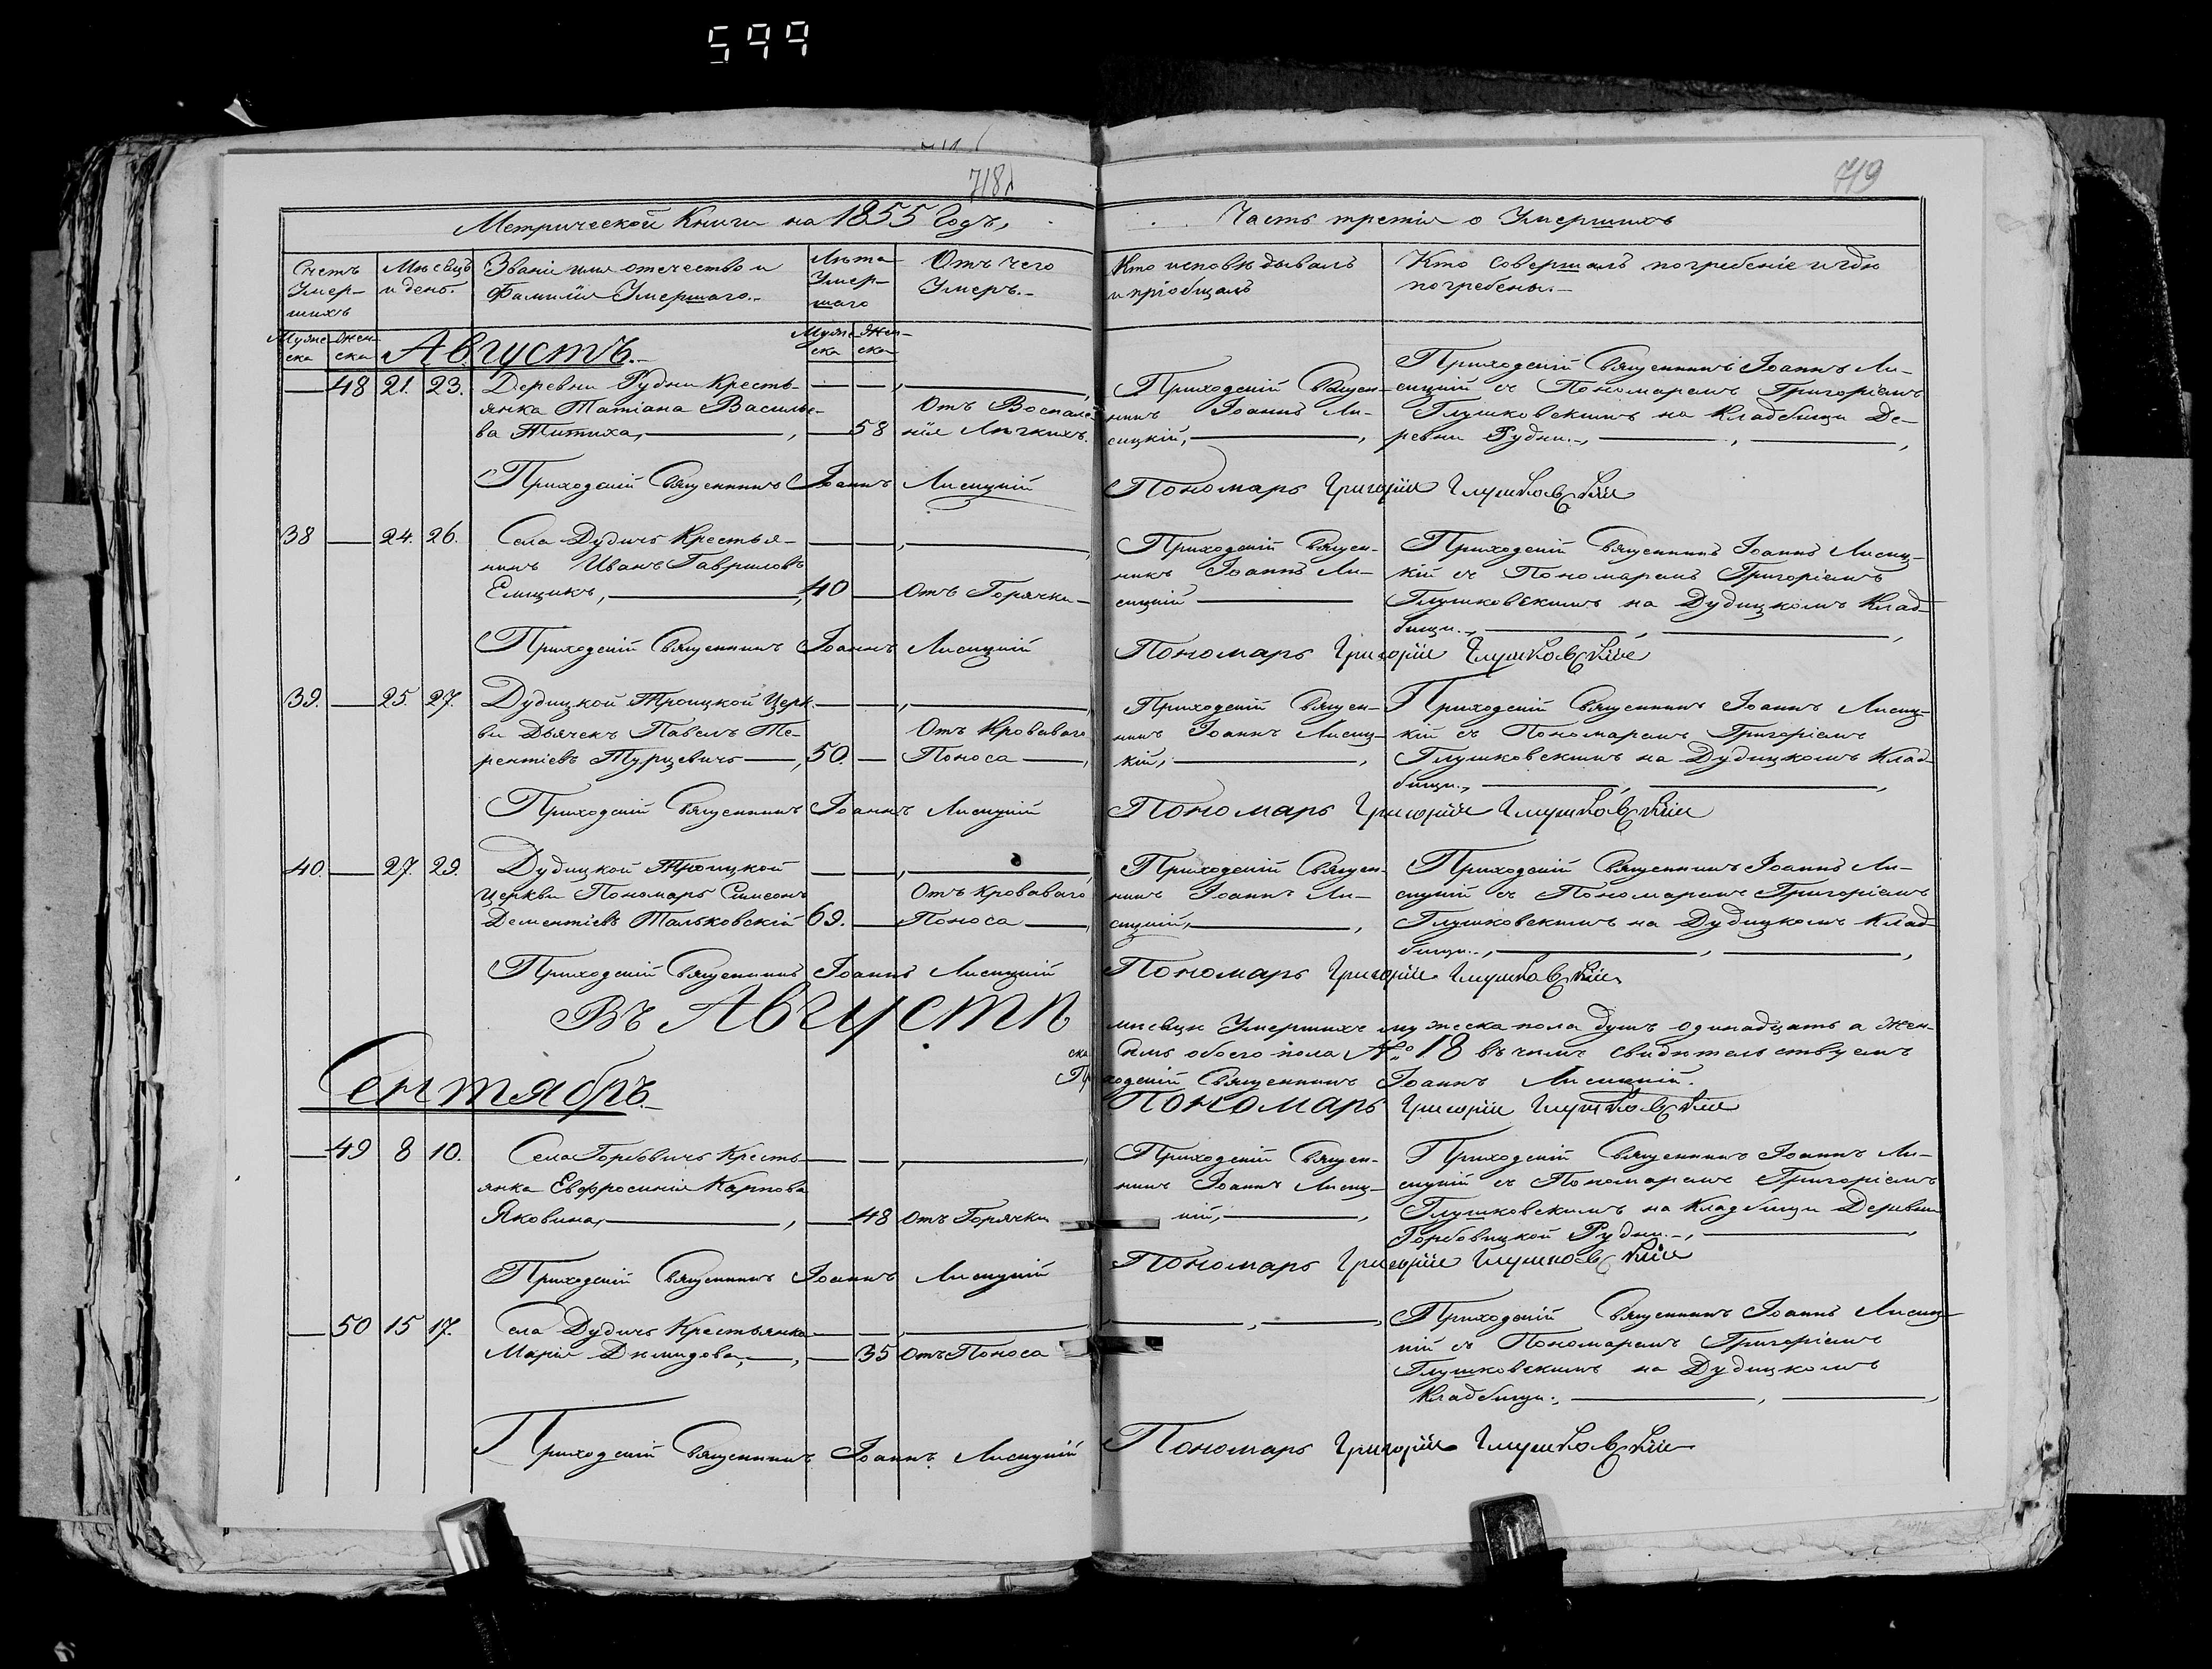 599
718
719
Метрической Книги на 1855 Годъ,
Часть третія о Умершихъ
Счетъ Умер-шихъ
Мѣсяцъ и день.
Званіе имя отечество и
Фамилія Умершаго.
Лѣта Умер-шаго
Отъ чего
Умеръ.
Кто исповѣдывалъ
и пріобщалъ
Кто совершалъ погребеніе и гдѣ
погребены.
Муже-ска Жен-ска
Муже-ска Жен-ска
Августъ.
— 48 21. 23. Деревни Рудни Кресть-
янка Татіана Василье-
ва Титиха, — 58
Отъ Воспале-
нія Легкихъ.
Приходскій Священ-
никъ Іоаннъ Ли-
сицкій,
Приходскій Священникъ Іоаннъ Ли-
сицкій съ Пономаремъ Григоріемъ
Глушковскимъ на Кладбищи Де-
ревни Рудни.
Приходскій Священникъ Іоаннъ Лисицкій
Пономарь Григорій Глушковскій
38 — 24. 26. Села Дудичъ Крестья-
нинъ Иванъ Гавриловъ
Емщикъ, 40 — Отъ Горячки
Приходскій Священ-
никъ Іоаннъ Ли-
сицкій
Приходскій Священникъ Іоаннъ Лисиц-
кій съ Пономаремъ Григоріемъ
Глушковскимъ на Дудицкомъ Клад-
бищи.
Приходскій Священникъ Іоаннъ Лисицкій
Пономарь Григорій Глушковскій
39. — 25. 27. Дудицкой Троицкой Церк-
ви Дьячекъ Павелъ Те-
рентіевъ Турцевичъ, 50. —
Отъ Кроваваго
Поноса
Приходскій Священ-
никъ Іоаннъ Лисиц-
кій,
Приходскій Священникъ Іоаннъ Лисиц-
кій съ Пономаремъ Григоріемъ
Глушковскимъ на Дудицкомъ Клад-
бищи.,
Приходскій Священникъ Іоаннъ Лисицкій
Пономарь Григорій Глушковскій
40. — 27. 29. Дудицкой Троицкой
Церкви Пономарь Симеонъ
Дементіевъ Тальковскій 69. —
Отъ Кроваваго
Поноса
Приходскій Священ-
никъ Іоаннъ Ли-
сицкій,
Приходскій Священникъ Іоаннъ Ли-
сицкій съ Пономаремъ Григоріемъ
Глушковскимъ на Дудицкомъ Клад-
бищи.,
Приходскій Священникъ Іоаннъ Лисицкій
Пономарь Григорій Глушковскій
Въ Августѣ мѣсяцѣ Умершихъ мужеска пола душъ одинадцать а жен-
ска обоего пола № 18 въ чемъ свидѣтельствуемъ
Приходскій Священникъ Іоаннъ Лисицкій.
Пономарь Григорій Глушковскій
Сентябрь.
— 49 8 10. Села Горбовичъ Кресть-
янка Евфросинія Карпова
Яковина, — 48 Отъ Горячки
Приходскій Священ-
никъ Іоаннъ Лисиц-
кій,
Приходскій Священникъ Іоаннъ Ли-
сицкій съ Пономаремъ Григоріемъ
Глушковскимъ на Кладбищи Деревни
Горбовицкой Рудни.
Приходскій Священникъ Іоаннъ Лисицкій
Пономарь Григорій Глушковскій
— 50 15 17. Села Дудичъ Крестьянка
Марія Демидова, — 35 Отъ Поноса
Приходскій Священникъ Іоаннъ Лисиц-
кій съ Пономаремъ Григоріемъ
Глушковскимъ на Дудицкомъ
Кладбищи.,
Приходскій Священникъ Іоаннъ Лисицкій
Пономарь Григорій Глушковскій